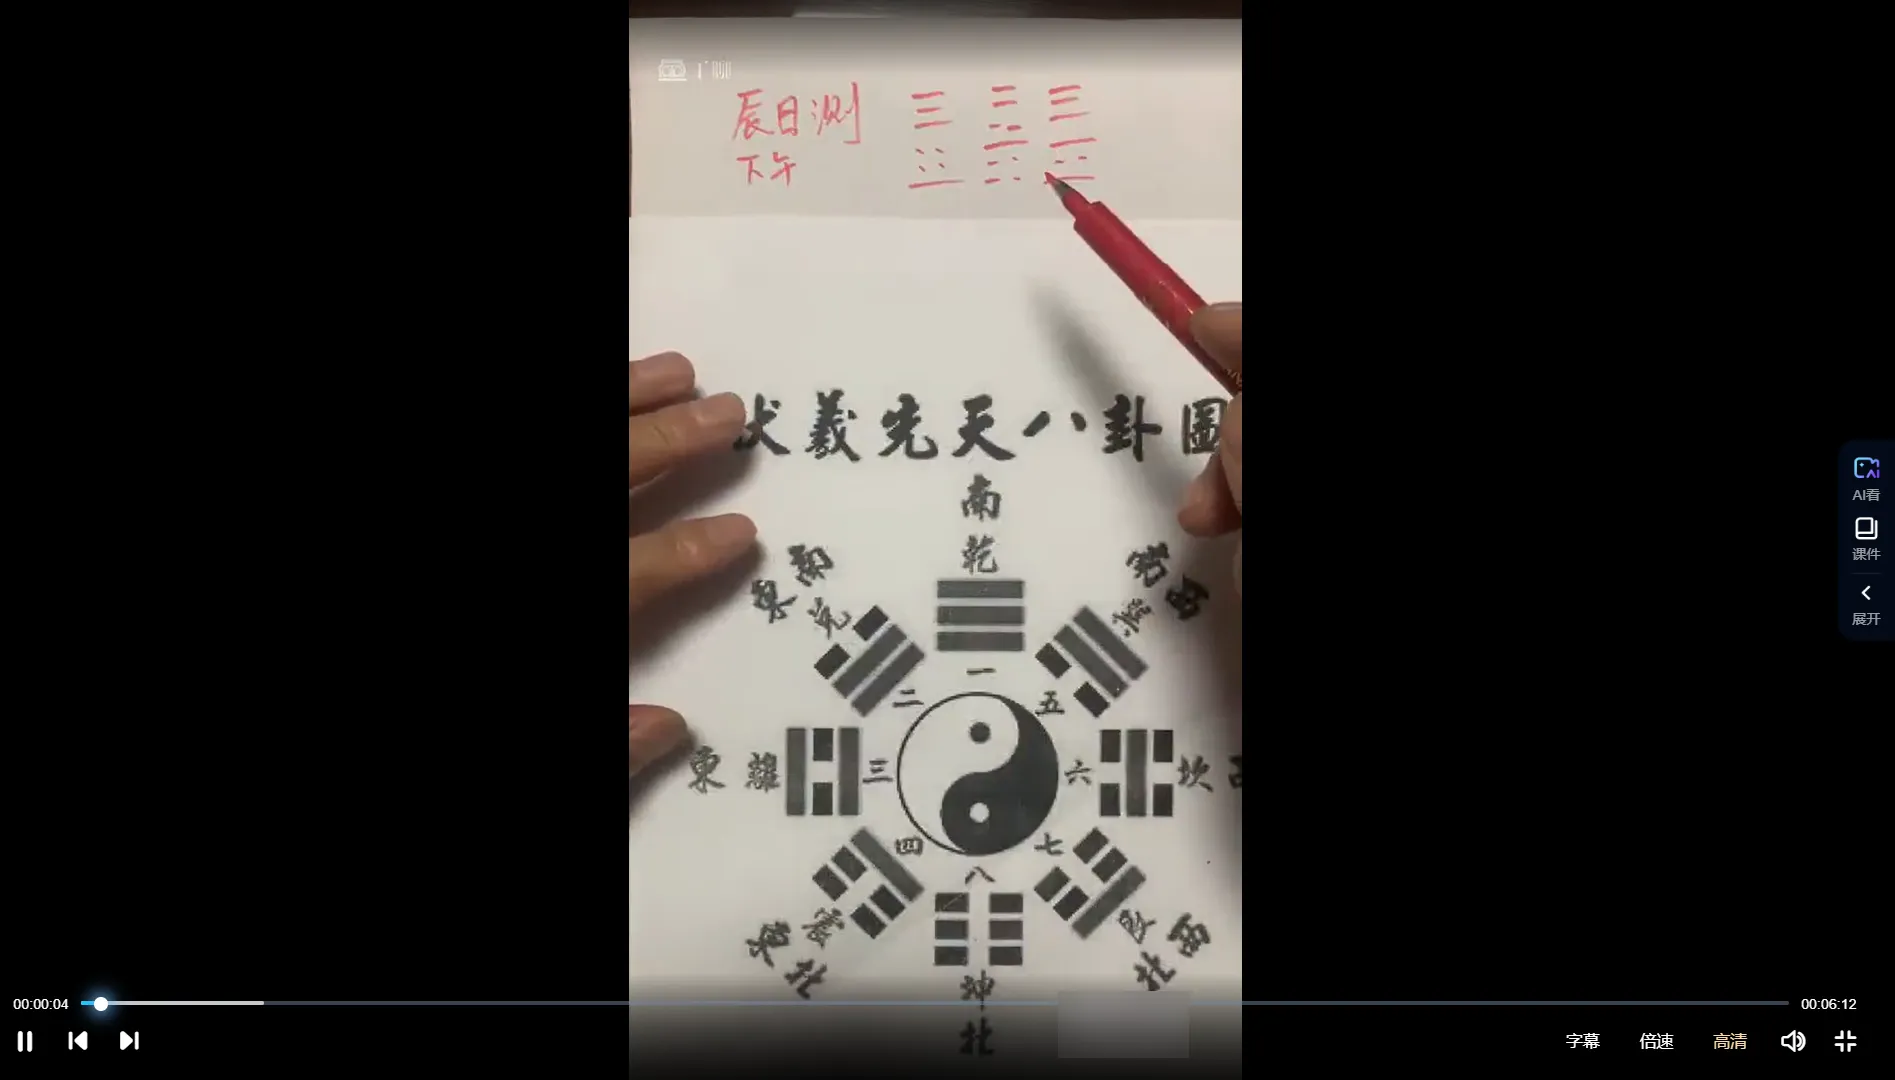 辰日测
下午
伏羲先天八卦圖
南
乾
東南
兑
一
二
五
東
離
三
六
坎
四
七
震
八
艮
東北
西北
坤
北
AI看
课件
展开
00:00:04
00:06:12
字幕
倍速
高清